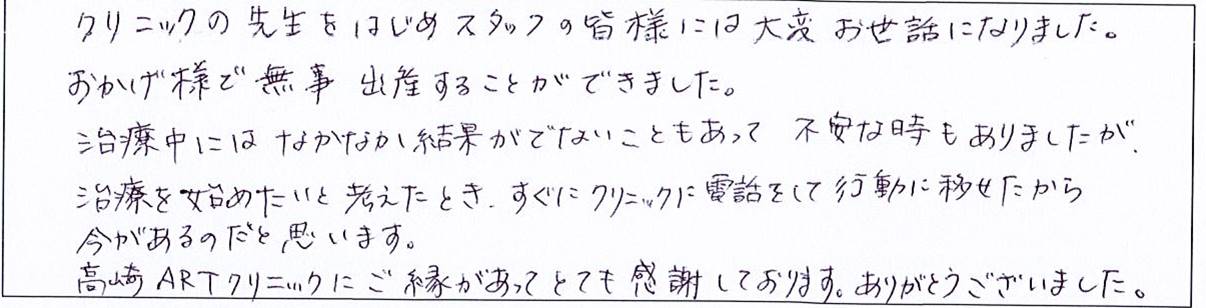 クリニックの先生をはじめスタッフの皆様には大変お世話になりました。
おかげ様で無事 出産することができました。
治療中にはなかなか結果がでないこともあって 不安な時もありましたが、
治療を始めたいと考えたとき、すぐにクリニックに電話をして行動に移せたから
今があるのだと思います。
高崎ARTクリニックにご縁があってとても感謝しております。ありがとうございました。